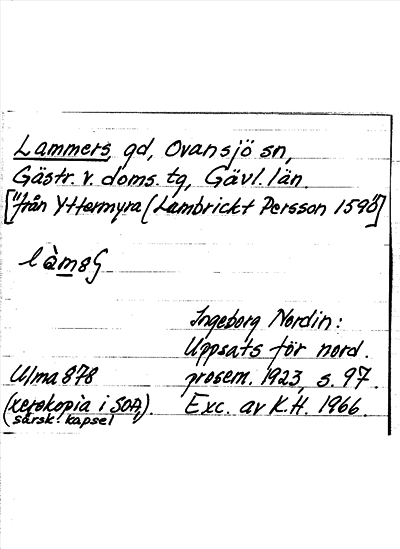 Lammers, gd, Ovansjö sn,
Gästr. v. doms. tg, Gävl. län.
["från Yttermyra (Lambrickt Persson 1590"]
làm8
Ingeborg Nordin:
Uppsats för nord.
Ulma 878 prosem. 1923, s. 97.
(xerokopia i SOA). Exc. av K.H. 1966.
särsk. kapsel